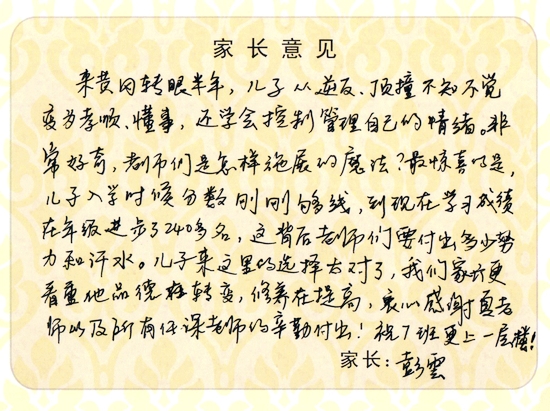 家长意见
来黄冈转眼半年，儿子从逆反、顶撞不知不觉
变为孝顺、懂事，还学会控制管理自己的情绪。非
常好奇，老师们是怎样施展的魔法？最惊喜的是，
儿子入学时候分数刚刚够线，到现在学习成绩
在年级进步了240多名，这背后老师们要付出多少努
力和汗水。儿子来这里的选择太对了，我们家长更
看重他品德在转变，修养在提高，衷心感谢夏老
师以及所有任课老师的辛勤付出！祝7班更上一层楼！
家长：彭云